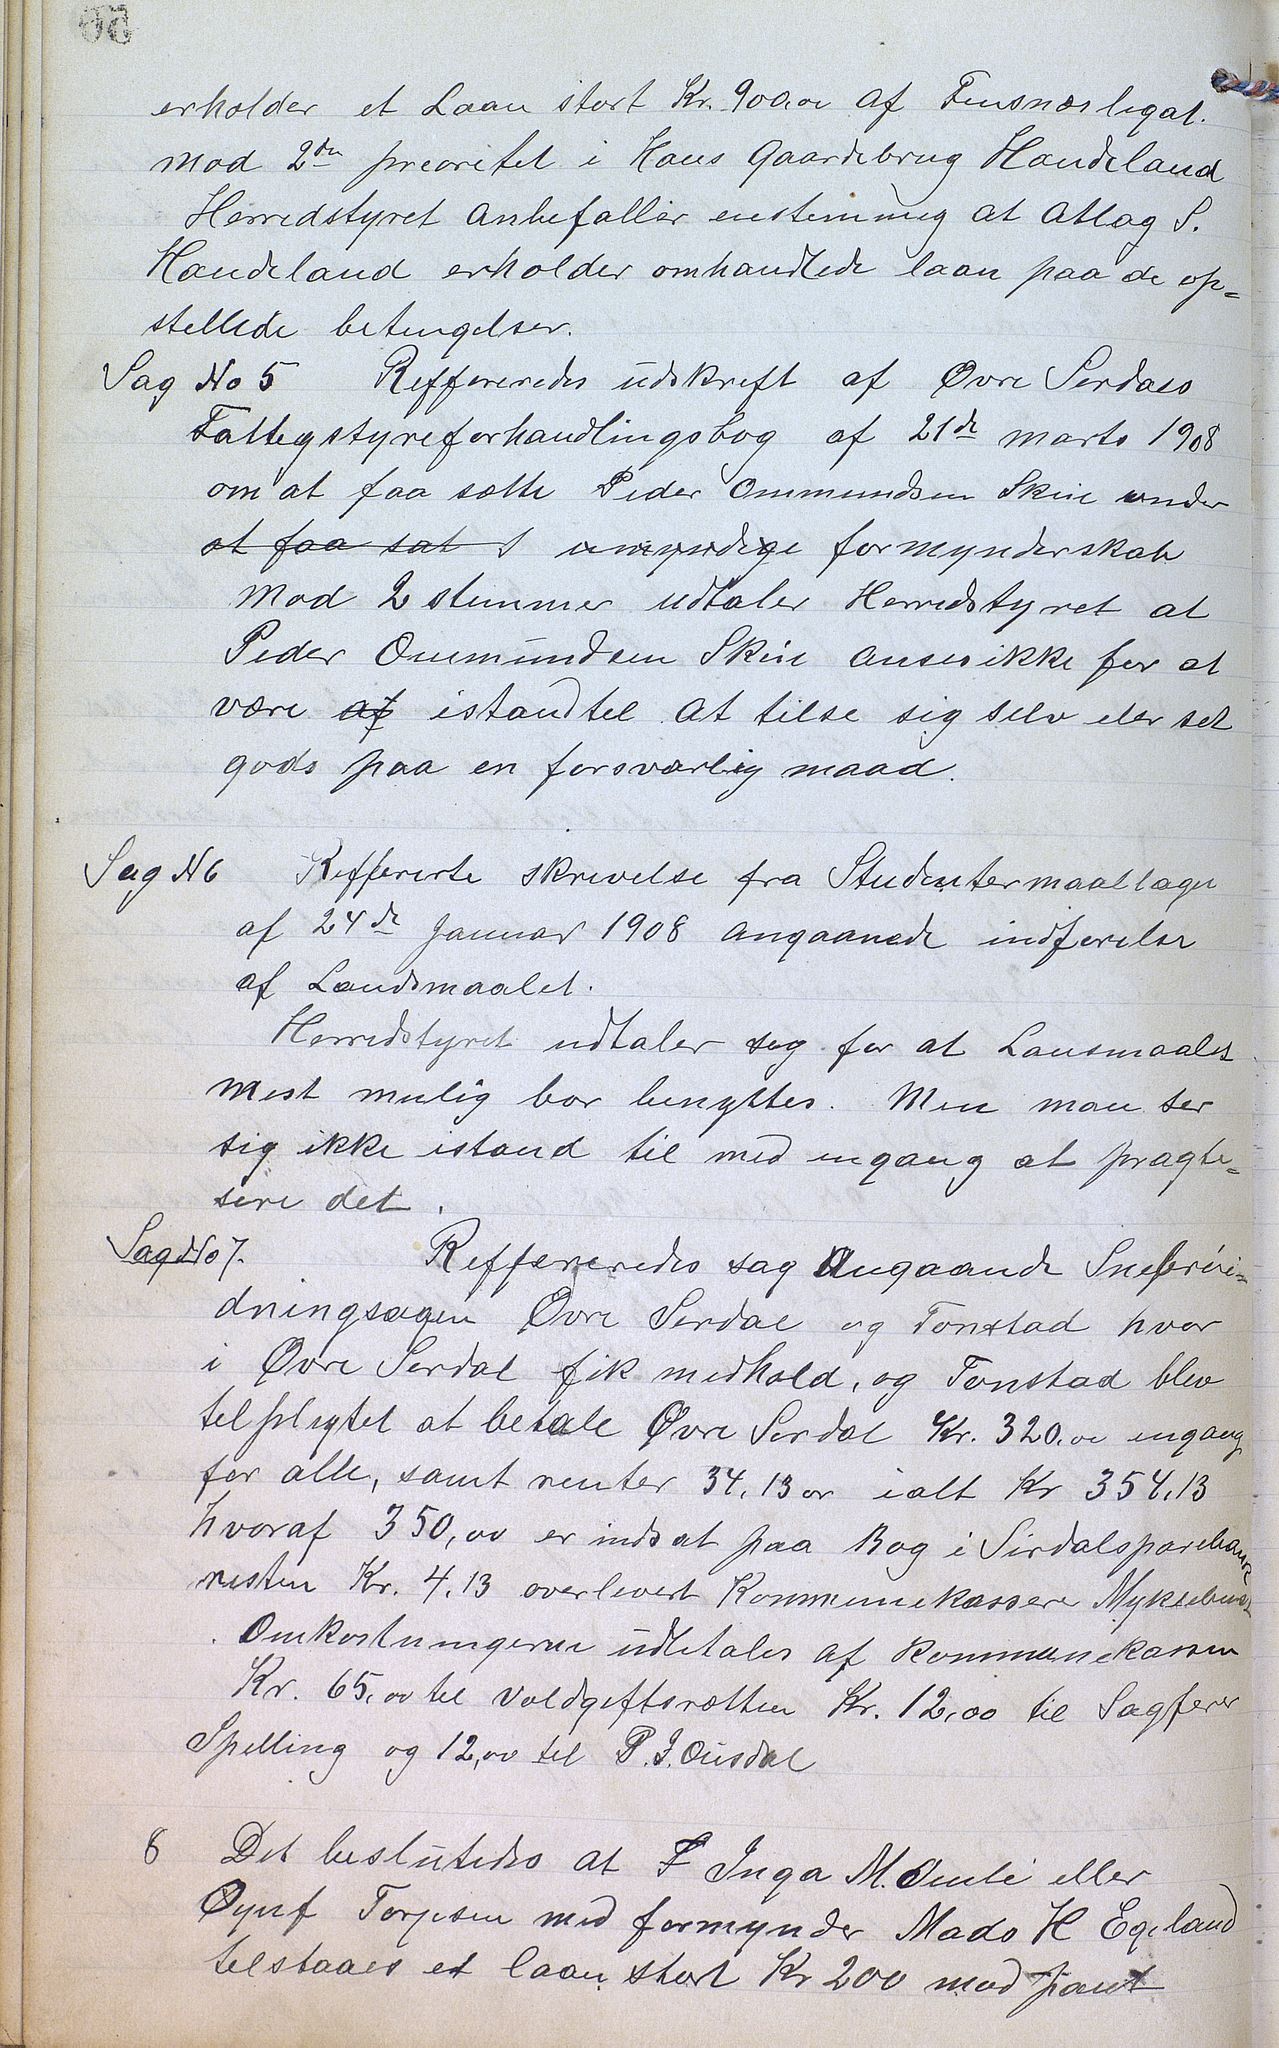 erholder et Laan stort Kr. 900,oo af Finsnæs legat.
mod 2den preoritet i Hans Gaardebrug Handeland
Herredstyret Anbefaller enstemmig at Atlag S.
Handeland erholder omhandlede laan paa de op-
stellede betingelser.
Sag No 5 Reffereredes udskreft af Øvre Serdals
Fattegstyreforhandlingsbog af 21de marts 1908
om at faa sætte Peder Ommundsen Skin under
at faa sat umyndige formynderskab
Mod 2 stemmer udtaler Herredstyret at
Peder Ommundsen Skin anses ikke for at
være af istandtel at tilse sig selv eler set
gods paa en forsvarlig maad.
Sag N 6 Reffererte skrivelse fra Studentermaallage
af 24de Januar 1908 angaanede indførelse
af Landsmaalet.
Herredstyret udtaler seg for at Lansmaalet
mest mulig bør benyttes. Men man ser
sig ikke istand til med engang at pragte-
sere det.
Sag No 7. Reffereredes sag Angaande Snebrøi-
dningsagen Øvre Serdal og Tonstad hvor
i Øvre Serdal fik medhold, og Tonstad blev
telplegtet at betale Øvre Serdal Kr. 320,oo engang
for alle, samt renter 34,13 ør ialt Kr 354,13
hvoraf 350,oo er indsat paa Bog i Sirdalsparebank
resten Kr. 4,13 overlevert Kommunekassere
Omkostningerne udbetales af Kommunekassen
Kr. 65,oo tel Voldgeftsrætten Kr. 12,oo til Sagfører
Spelling og 12,oo tel P.J. Ousdal
8 Det beslutedes at Inga M. Omli eller
Torjesen med formynder Mads H Egeland
telstaaes et laan stort Kr 200 mod pant